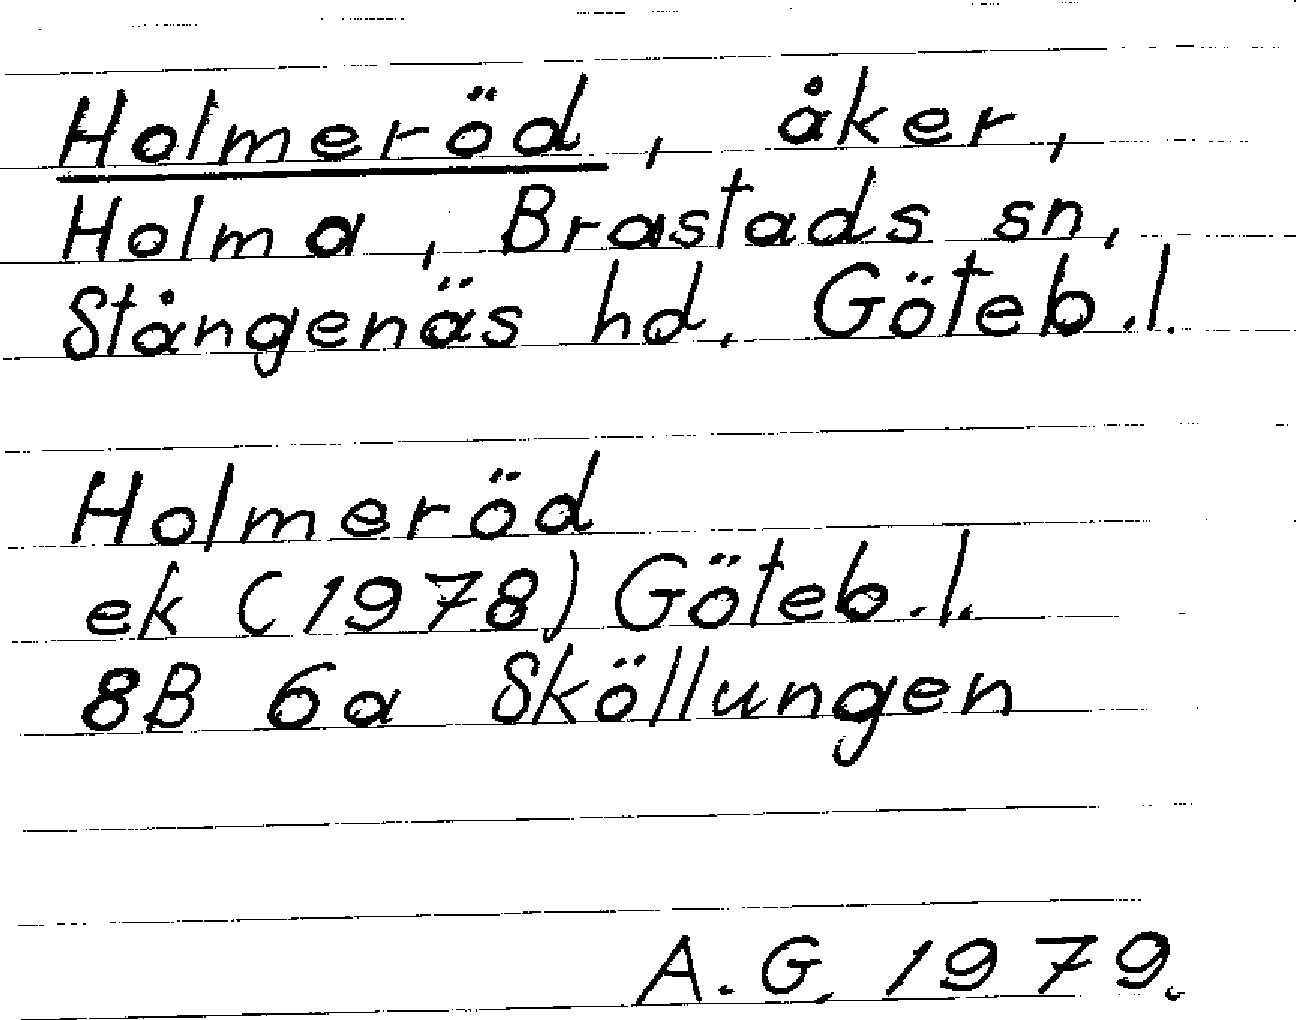 Holmeröd, åker,
Holma, Brastads sn,
Stångenäs hd, Göteb.l.
Holmeröd
ek (1978) Göteb.l.
8B 6a Sköllungen
A.G. 1979.